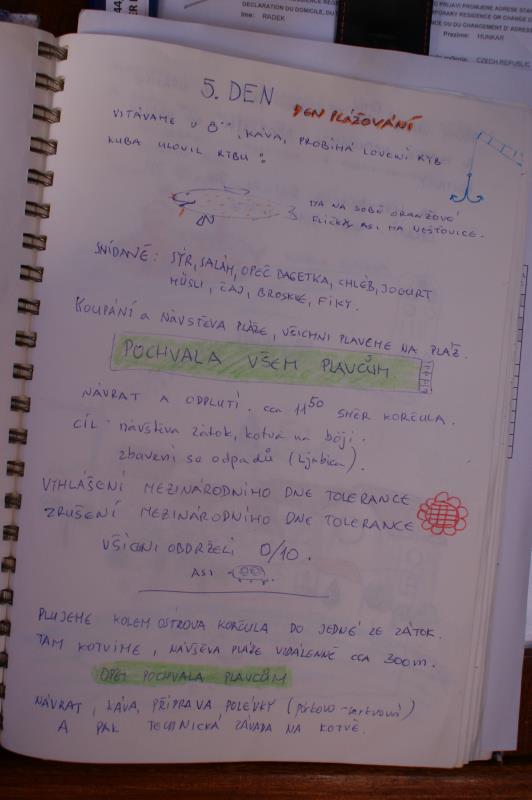 DECLARATION DU DOMICILE, DU
Ime: RADEK
O PRIJAVI PROMJENE ADRESE STAN
PORARY RESIDENCE OR CHANGE
CE OU DU CHANGEMENT D'ADRESSE
Prezime: HUNKAR
CZECH REPUBLIC
5. DEN
DEN PLÁŽOVÁNÍ
VSTÁVÁME V 8°°, KÁVA, PROBÍHÁ LOVENÍ RYB
KUBA ULOVIL RYBU:
MÁ NA SOBĚ ORANŽOVÉ
FLÍČKY ASI MÁ NEŠTOVICE.
SNÍDANĚ: SÝR, SALÁM, OPEČ BAGETKA, CHLÉB, JOGURT
MÜSLI, ČAJ, BROSKVE, FÍKY.
KOUPÁNÍ a NÁVŠTĚVA PLÁŽE, VŠICHNI PLAVEME NA PLÁŽ.
POCHVALA VŠEM PLAVCŮM
NÁVRAT A ODPLUTÍ. cca 11⁵⁰ SMĚR KORČULA.
CÍL: návštěva zátok, kotva na bóji.
zbavení se odpadů (Ljubica).
VYHLÁŠENÍ MEZINÁRODNÍHO DNE TOLERANCE
ZRUŠENÍ MEZINÁRODNÍHO DNE TOLERANCE
VŠICHNI OBDRŽELI 0/10.
ASI
PLUJEME KOLEM OSTROVA KORČULA DO JEDNÉ ZE ZÁTOK.
TAM KOTVÍME, NÁVŠĚVA PLÁŽE VZDÁLENNÉ CCA 300m.
OPĚT POCHVALA PLAVCŮM
NÁVRAT, KÁVA, PŘÍPRAVA POLÉVKY
A PAK TECHNICKÁ ZÁVADA NA KOTVĚ.